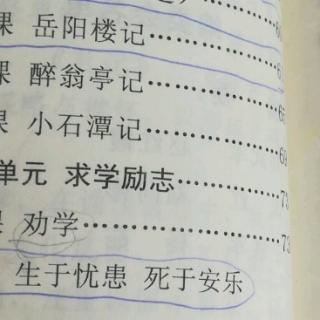 课 岳阳楼记…………
课 醉翁亭记…………
课 小石潭记…………
单元 求学励志…………73
课 劝学…………73
生于忧患 死于安乐